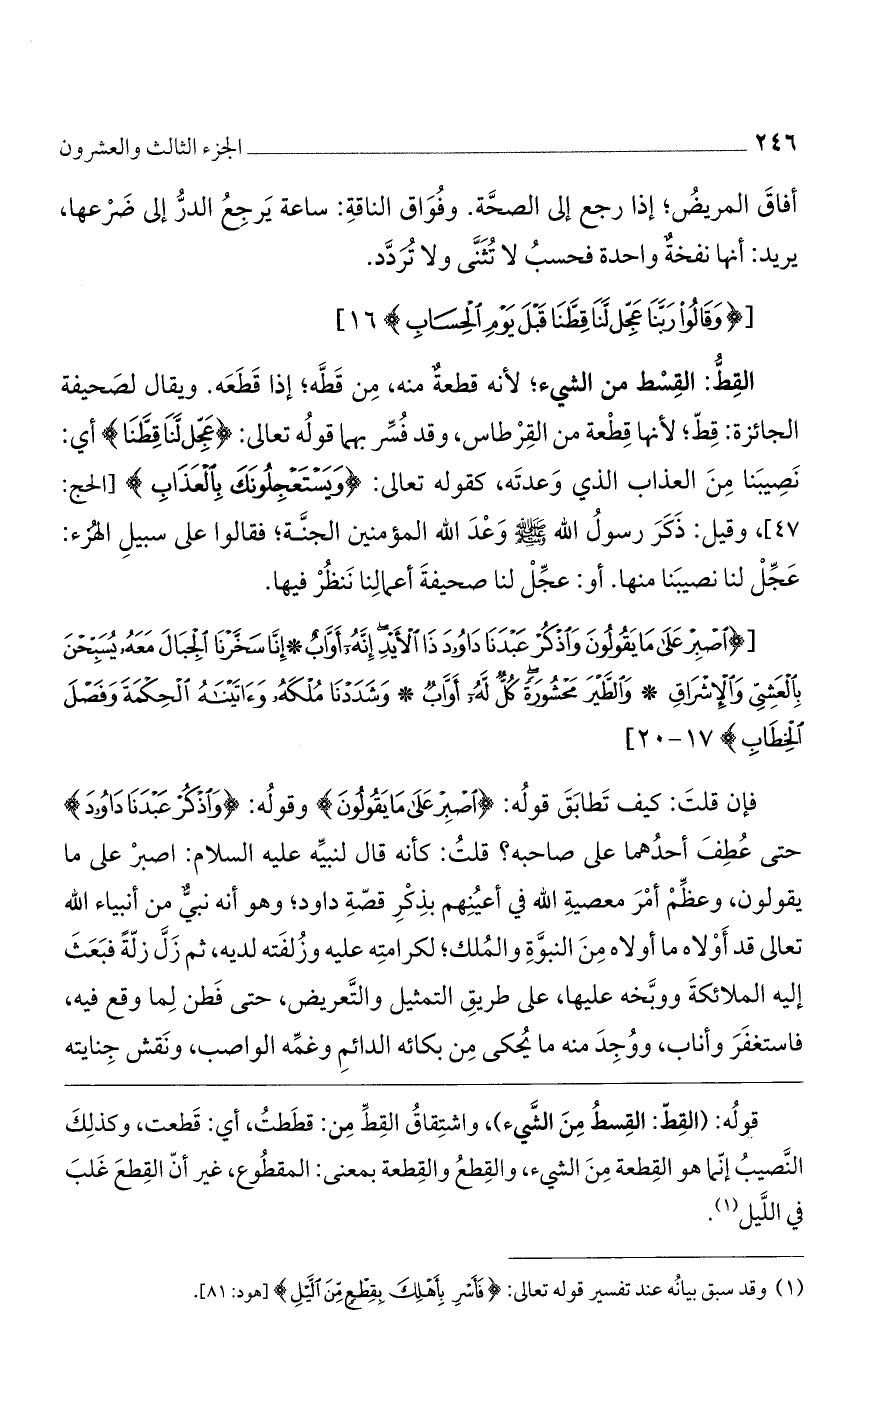 ٢٤٦ الجزء الثالث والعشرون
أفاقَ المريضُ؛ إذا رجع إلى الصحَّة. وفُوَاق الناقةِ: ساعة يَرجِعُ الدرُّ إلى ضَرْعها،
يريد: أنها نفخةٌ واحدة فحسبُ لا تُثَنَّى ولا تُرَدَّد.
[﴿وَقَالُوا۟ رَبَّنَا عَجِّل لَّنَا قِطَّنَا قَبْلَ يَوْمِ ٱلْحِسَابِ﴾ ١٦]
القِطُّ: القِسْط من الشيء؛ لأنه قطعةٌ منه، مِن قَطَّه؛ إذا قَطَعَه. ويقال لصَحيفة
الجائزة: قِطّ؛ لأنها قِطْعة من القِرْطاس، وقد فُسِّر بهما قولُه تعالى: ﴿عَجِّل لَّنَا قِطَّنَا﴾ أي:
نَصِيبَنا مِنَ العذاب الذي وَعدتَه، كقوله تعالى: ﴿وَيَسْتَعْجِلُونَكَ بِٱلْعَذَابِ﴾ [الحج:
٤٧]، وقيل: ذَكَرَ رسولُ الله ﷺ وَعْدَ الله المؤمنين الجنَّة؛ فقالوا على سبيلِ الهُزء:
عَجِّلْ لنا نصيبَنا منها. أو: عجِّلْ لنا صحيفةَ أعمالِنا نَنظُرْ فيها.
[﴿ٱصْبِرْ عَلَىٰ مَا يَقُولُونَ وَٱذْكُرْ عَبْدَنَا دَاوُۥدَ ذَا ٱلْأَيْدِ ۖ إِنَّهُۥٓ أَوَّابٌ * إِنَّا سَخَّرْنَا ٱلْجِبَالَ مَعَهُۥ يُسَبِّحْنَ
بِٱلْعَشِىِّ وَٱلْإِشْرَاقِ * وَٱلطَّيْرَ مَحْشُورَةً ۖ كُلٌّ لَّهُۥٓ أَوَّابٌ * وَشَدَدْنَا مُلْكَهُۥ وَءَاتَيْنَٰهُ ٱلْحِكْمَةَ وَفَصْلَ
ٱلْخِطَابِ﴾ ١٧-٢٠]
فإن قلتَ: كيف تَطابَقَ قولُه: ﴿ٱصْبِرْ عَلَىٰ مَا يَقُولُونَ﴾ وقولُه: ﴿وَٱذْكُرْ عَبْدَنَا دَاوُۥدَ﴾
حتى عُطِفَ أحدُهما على صاحبه؟ قلتُ: كأنه قال لنبيِّه عليه السلام: اصبرْ على ما
يقولون، وعظِّمْ أمْرَ معصيةِ الله في أعيُنِهم بذِكْرِ قصّةِ داود؛ وهو أنه نبيٌّ من أنبياء الله
تعالى قد أَوْلاه ما أولاه مِنَ النبوَّةِ والمُلك؛ لكرامتِه عليه وزُلفَته لديه، ثم زَلَّ زلّةً فبَعَثَ
إليه الملائكةَ ووبَّخه عليها، على طريقِ التمثيل والتَّعريض، حتى فَطن لِما وقع فيه،
فاستغفَرَ وأناب، ووُجِدَ منه ما يُحكى مِن بكائه الدائمِ وغمِّه الواصب، ونَقش جِنايته
قولُه: (القِطّ: القِسطُ مِنَ الشَّيء)، واشتِقاقُ القِطِّ مِن: قطَطتُ، أي: قَطعت، وكذلِكَ
النَّصيبُ إنّما هو القِطعة مِنَ الشيء، والقِطعُ والقِطعة بمعنى: المقطُوع، غير أنّ القِطعَ غَلبَ
في اللَّيل(١).
(١) وقد سبق بيانُه عند تفسير قوله تعالى: ﴿فَأَسْرِ بِأَهْلِكَ بِقِطْعٍ مِّنَ ٱلَّيْلِ﴾ [هود: ٨١].